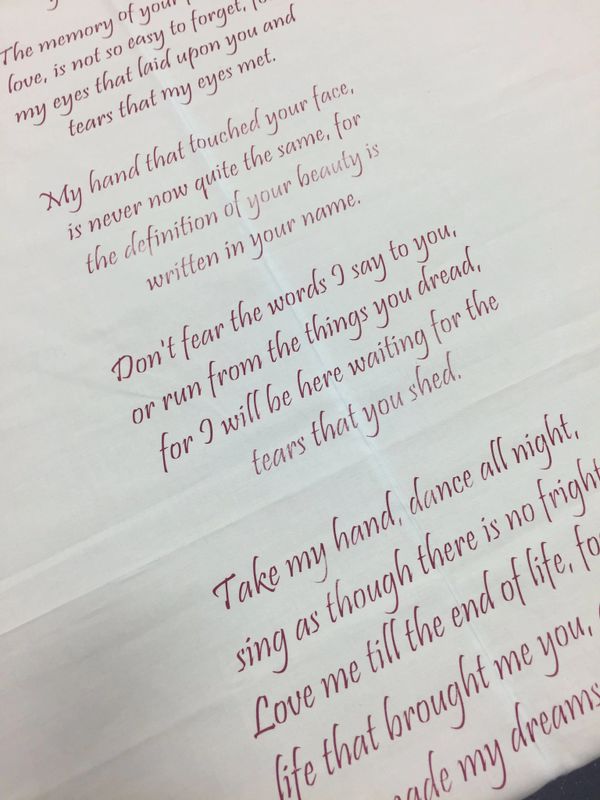 The memory of your
love, is not so easy to forget,
my eyes that laid upon you and
tears that my eyes met.
My hand that touched your face,
is never now quite the same, for
the definition of your beauty is
written in your name.
Don't fear the words I say to you,
or run from the things you dread,
for I will be here waiting for the
tears that you shed.
Take my hand, dance all night,
sing as though there is no fright
Love me till the end of life,
life that brought me you,
my dreams